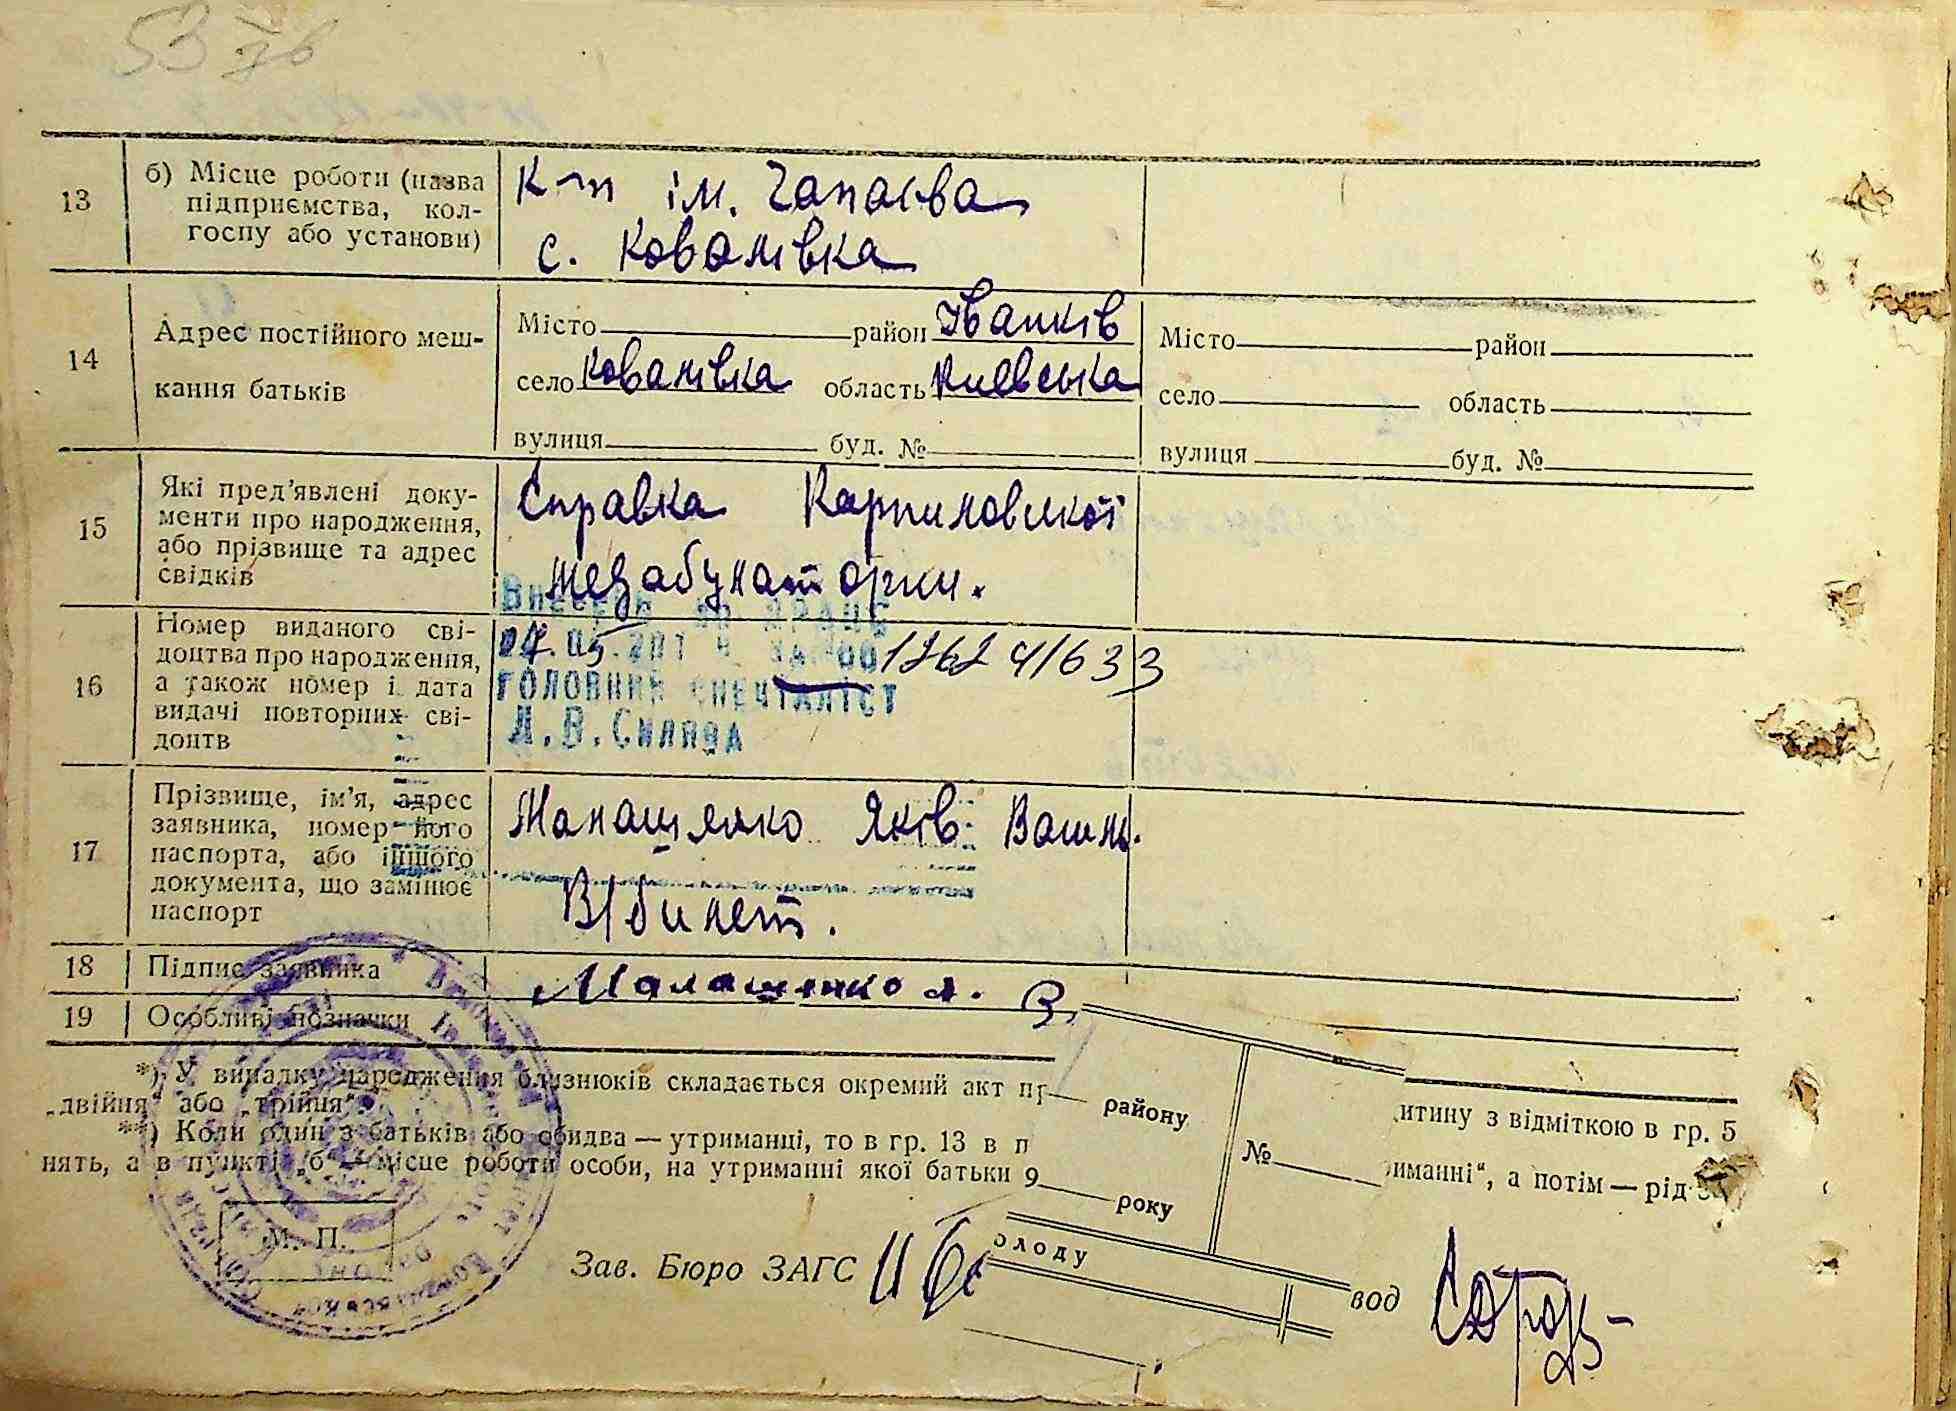 53 зв
13
б) Місце роботи (назва
підприємства, кол-
госпу або установи)
К-т ім. Чапаєва
с. Ковалівка
14
Адрес постійного меш-
кання батьків
Місто район Іванків
село Ковалівка область Киевська
вулиця буд. №
Місто район
село область
вулиця буд. №
15
Які пред'явлені доку-
менти про народження,
або прізвище та адрес
свідків
Справка Карпиловської
медабулатории.
16
Номер виданого сві-
доцтва про народження,
а також номер і дата
видачі повторних сві-
доцтв
ГОЛОВНИЙ СПЕЦІАЛІСТ
17
Прізвище, ім'я, адрес
заявника, номер його
паспорта, або іншого
документа, що замінює
паспорт
Малашенко Яків Васил.
В/билет.
18
Підпис заявника
Малашенко Я. В.
19
Особливі позначки
*) У випадку народження близнюків складається окремий акт пр
итину з відміткою в гр. 5
„двійня“ або „трійня“.
**) Коли один з батьків або обидва — утриманці, то в гр. 13 в п
иманні“, а потім — рід з
нять, а в пункті „б“ — місце роботи особи, на утриманні якої батьки
району
№
9 року
олоду
М. П.
Зав. Бюро ЗАГС
вод